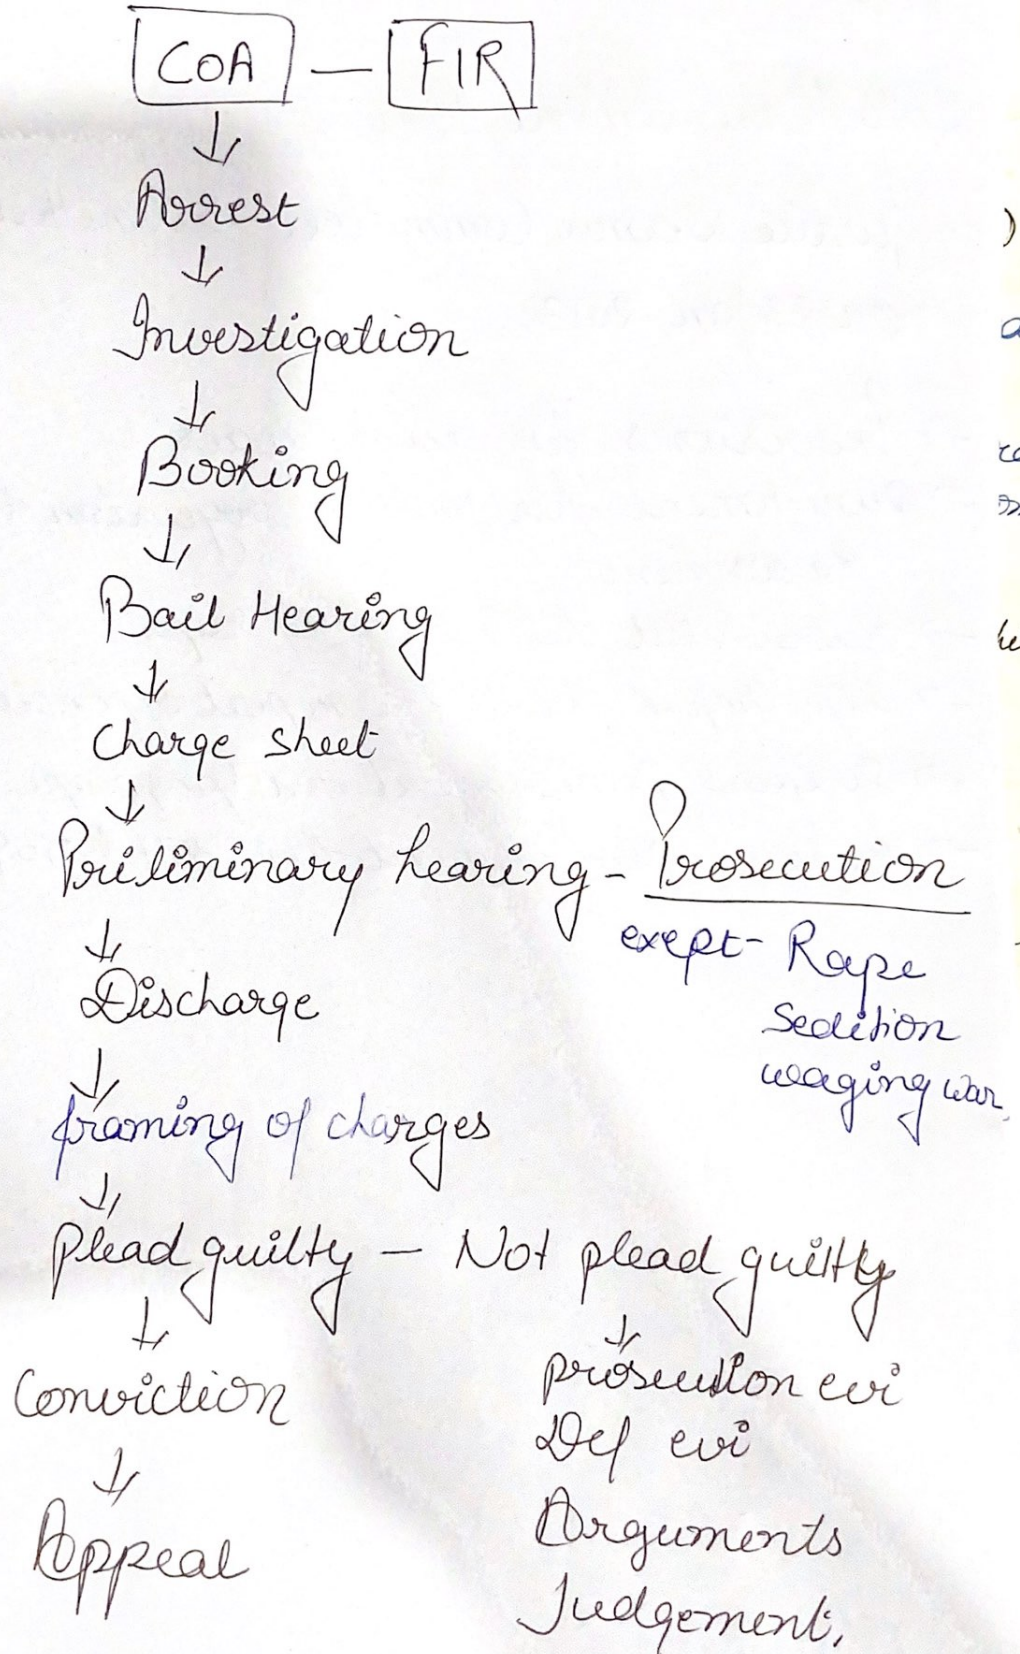 COA — FIR
↓
Arrest
↓
Investigation
↓
Booking
↓
Bail Hearing
↓
Charge sheet
↓
Preliminary hearing - Prosecution
exept- Rape
Sedition
waging war
↓
Discharge
↓
framing of charges
↓
Plead guilty — Not plead guilty
↓ ↓
Conviction
↓
Appeal
prosecution evi
Def evi
Arguments
Judgement,